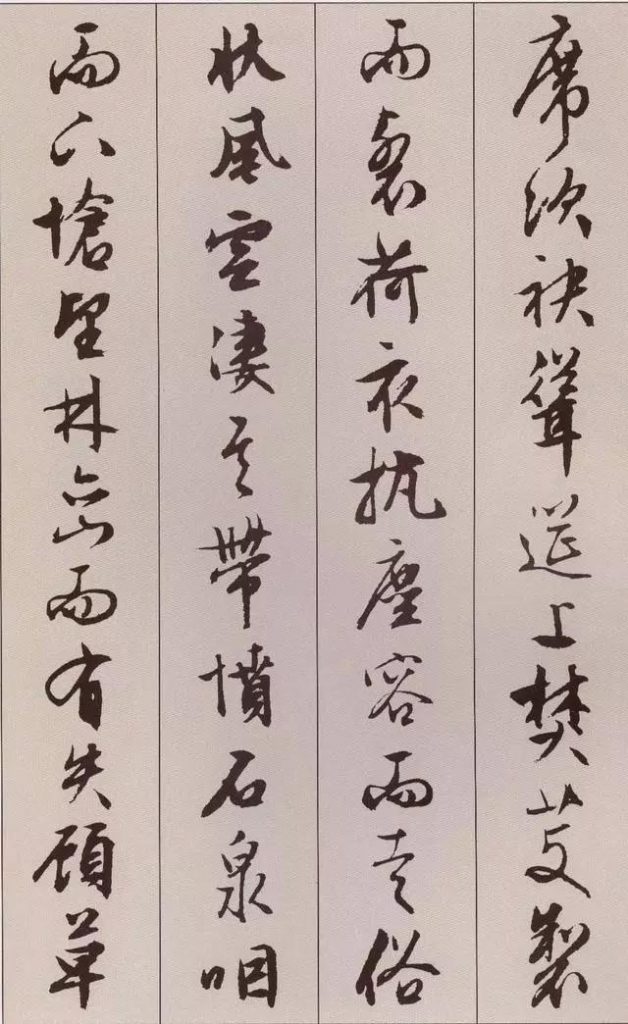 席次袂聳筵上焚芰製
而裂荷衣抗塵容而走俗
狀風雲淒其帶憤石泉咽
而下愴望林巒而有失顧草